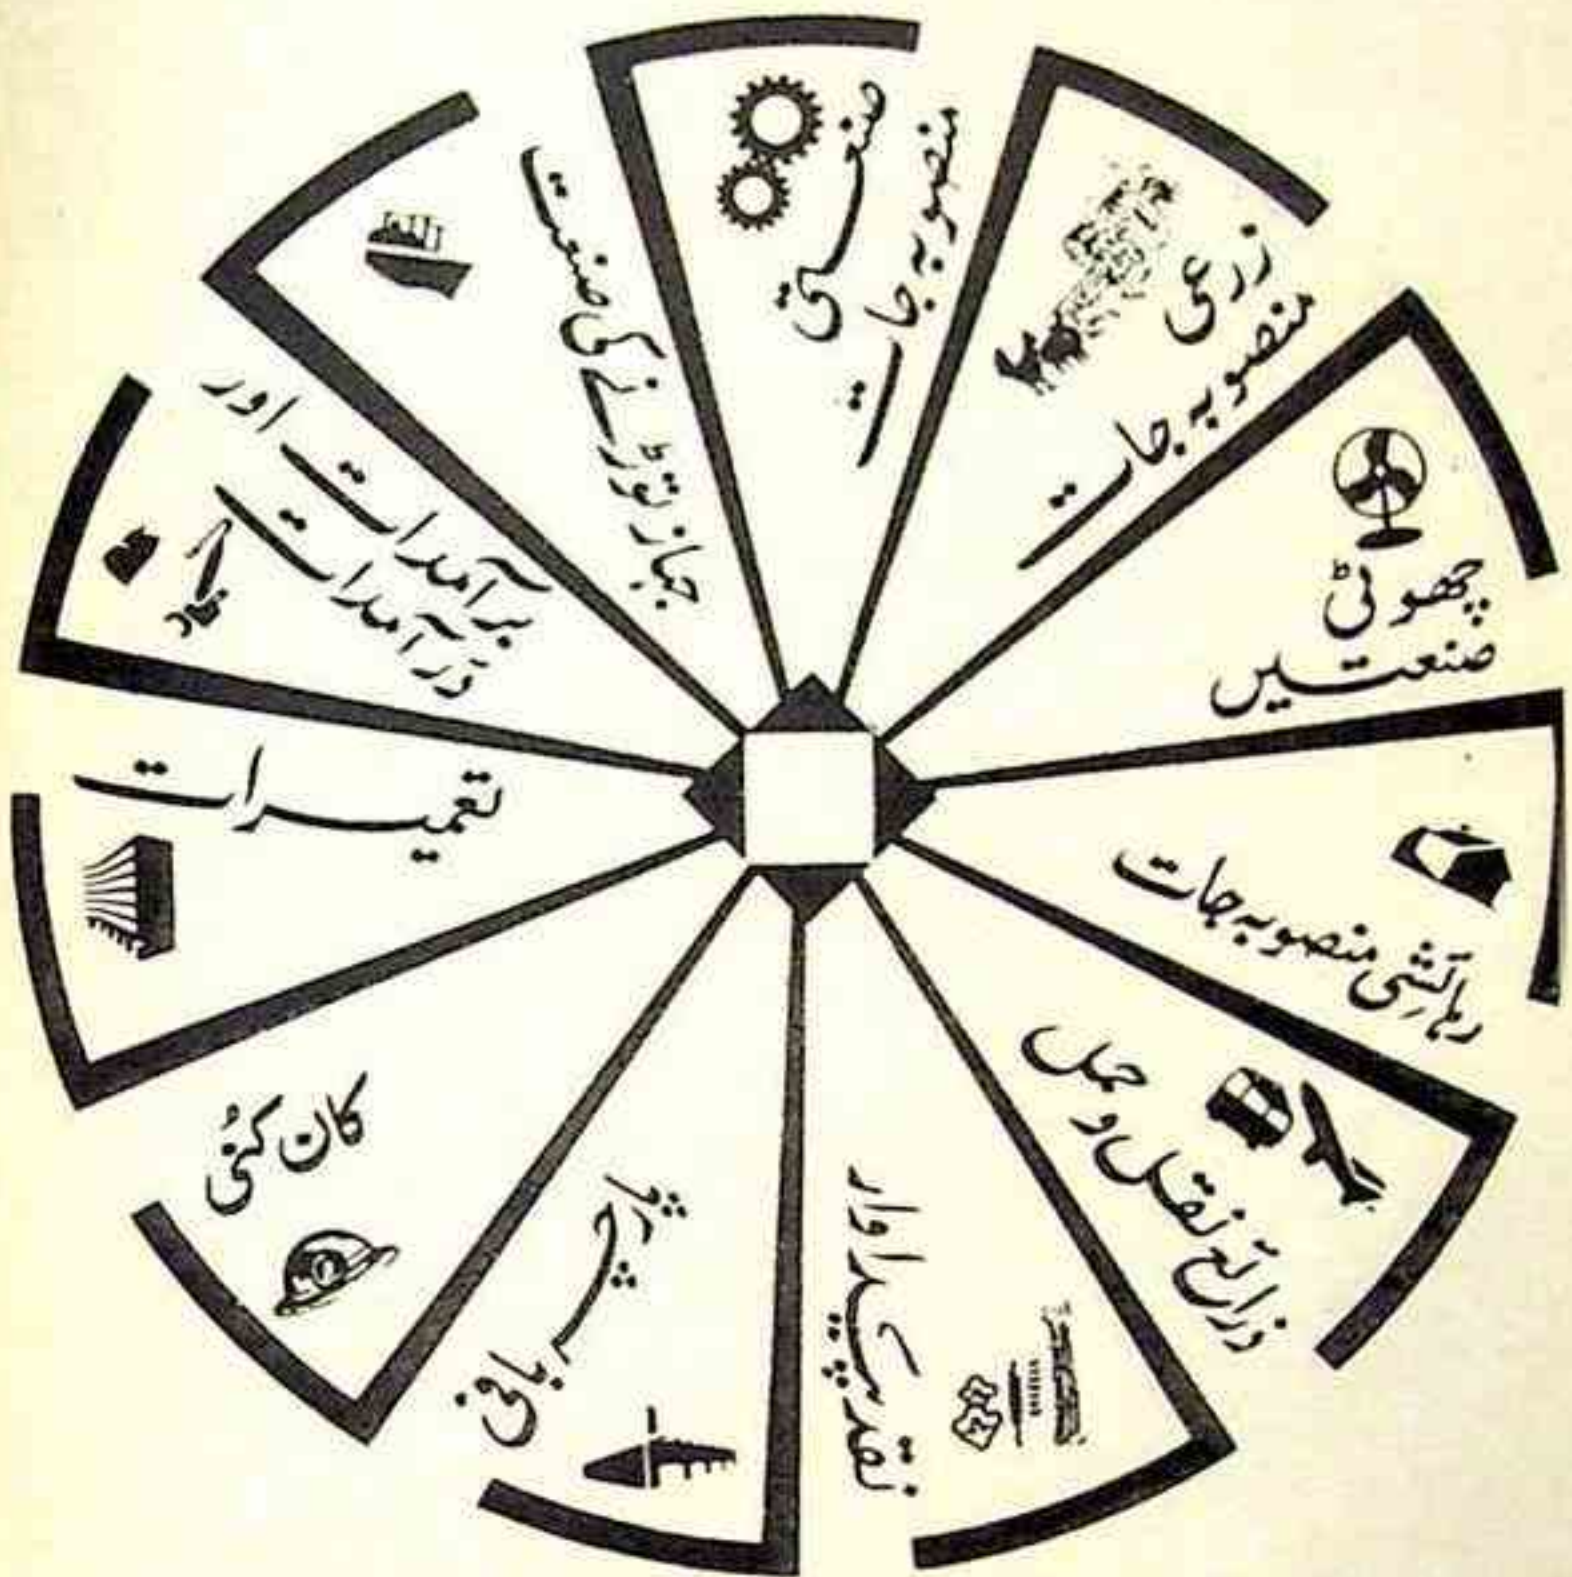 صنعتی
منصوبہ جات
زرعی
منصوبہ جات
چھوٹی
صنعتیں
رہائشی منصوبہ جات
ذرائع نقل و حمل
نقد پیداوار
پارچہ بافی
کان کنُی
تعمیرات
برآمدات اور
درآمدات
جہاز توڑنے کی صنعت